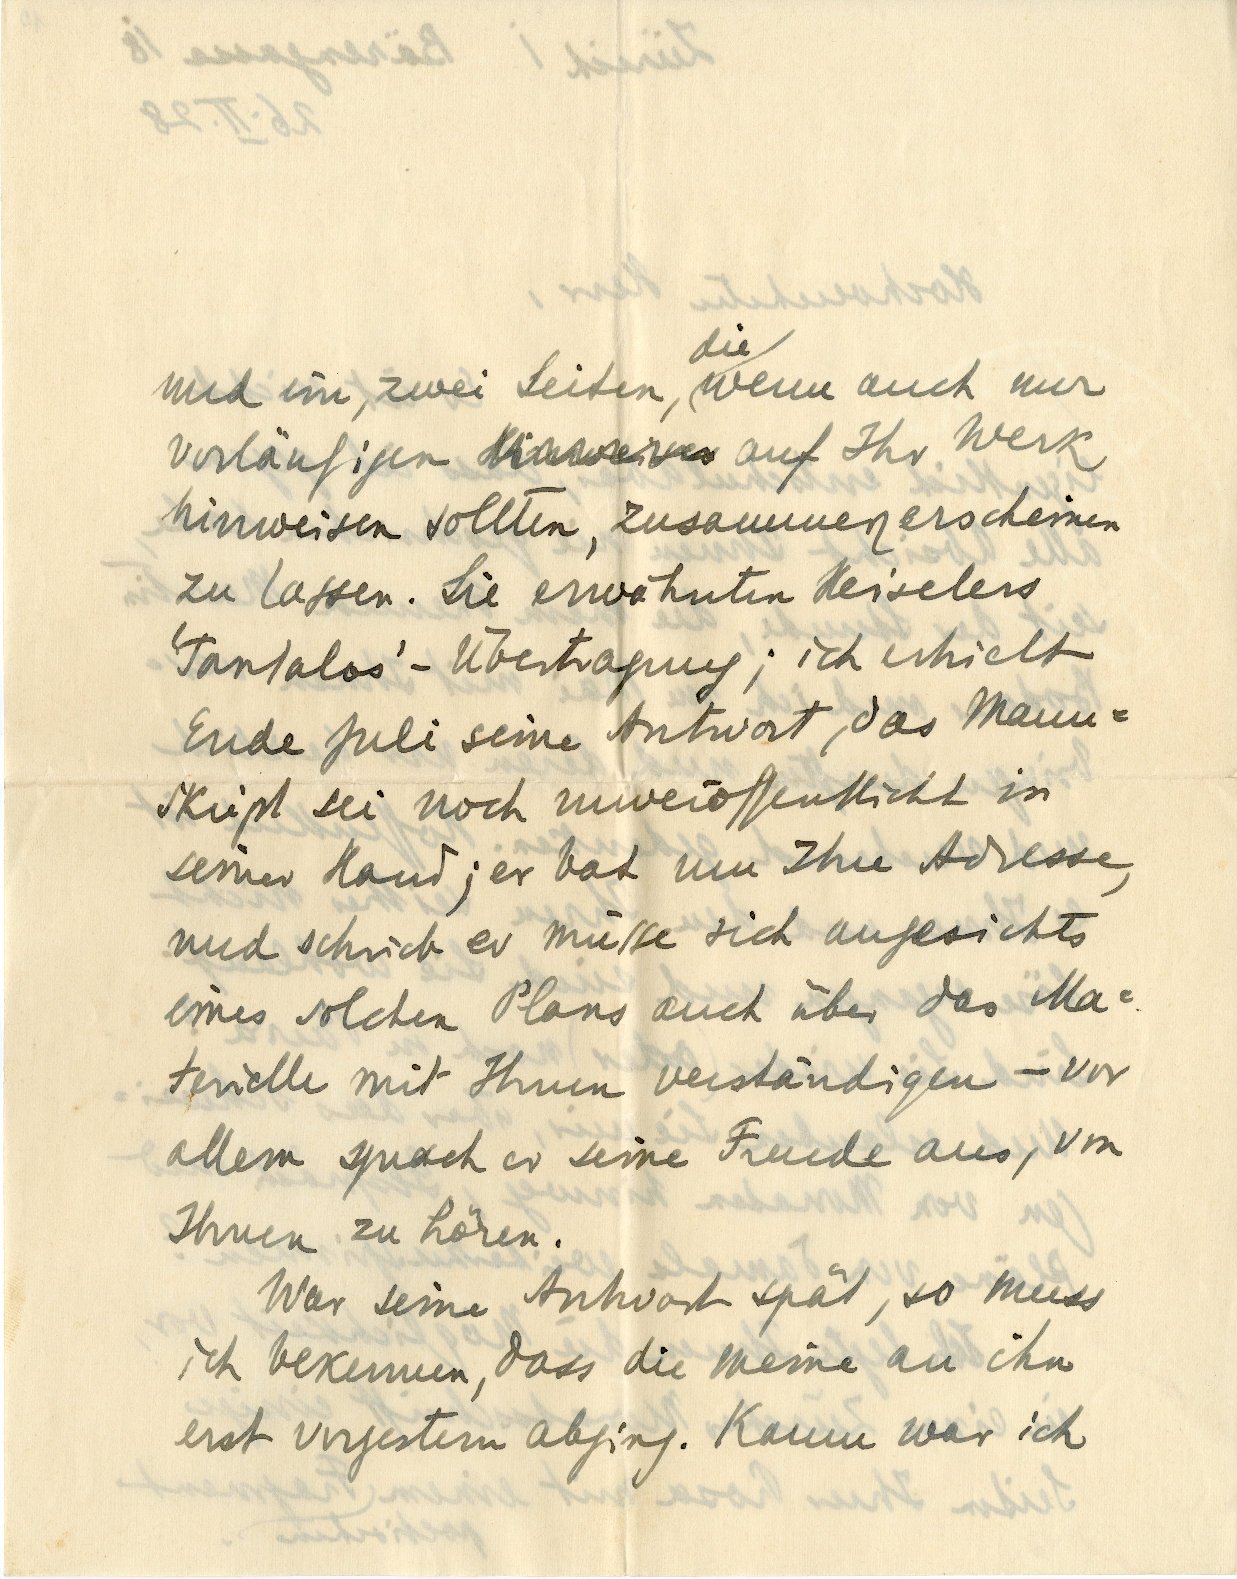 die
und ein, zwei Seiten, wenn auch nur
vorläufigen Hinweises auf Ihr Werk
hinweisen sollten, zusammen erscheinen
zu lassen. Sie erwähnten Heiselers
'Tantalos'-Übertragung; ich erhielt
Ende Juli seine Antwort, das Manu=
skript sei noch unveröffentlicht in
seiner Hand; er bat um Ihre Adresse,
und schrieb er müsse sich angesichts
eines solchen Plans auch über das Ma=
terielle mit Ihnen verständigen – vor
allem sprach er seine Freude aus, von
Ihnen zu hören.
War seine Antwort spät, so muss
ich bekennen, dass die meine an ihn
erst vorgestern abging. Kaum war ich